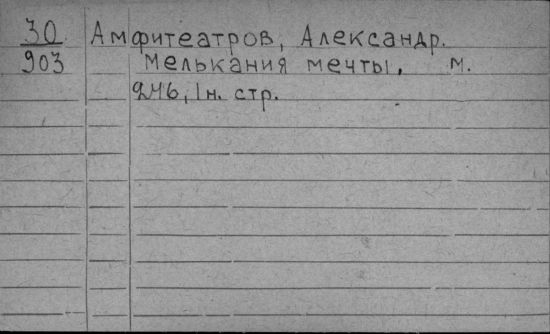 30 Амфитеатров, Александр.
903 Мелькания мечты. М.
246, 1 н. стр.